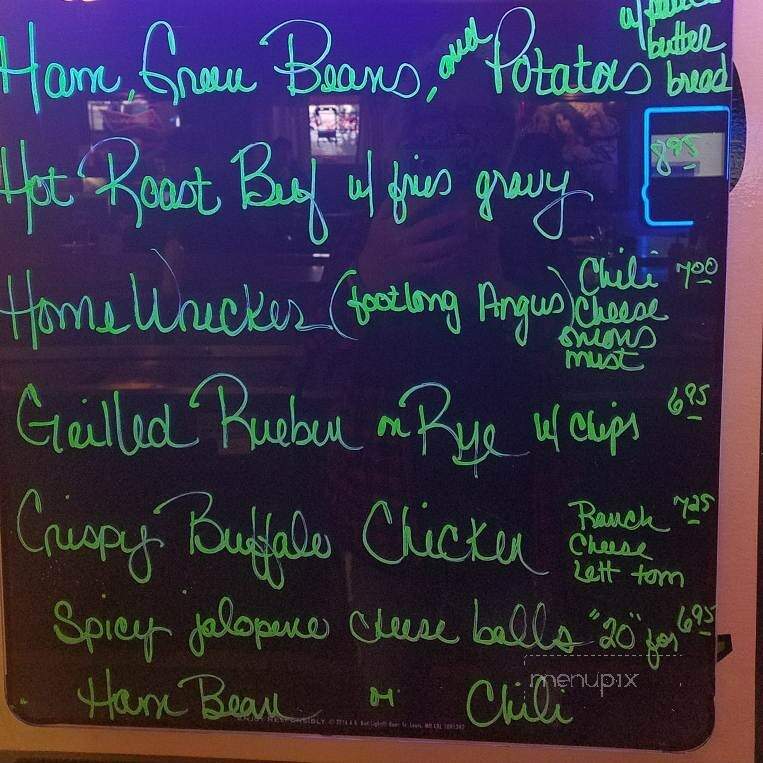 Ham, Green Beans, and Potatoes butter bread
Hot Roast Beef w/ fries gravy 8 95
Home Wrecker (footlong Angus) Chili 7 00
Cheese
onions
must
Grilled Rueben on Rye w/ chips 6 95
Crispy Buffalo Chicken Ranch 7 25
Cheese
Lett tom
Spicy jalopeno cheese balls "20" for 6 95
menupix
Ham Bean or Chili
ENJOY RESPONSIBLY